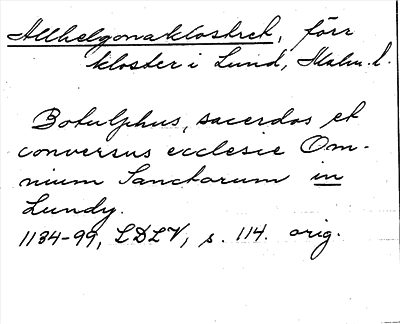 Allhelgonaklostret, förr
kloster i Lund, Malm. l.
Botulphus, sacerdos et
conversus ecclesie Om-
nium Sanctorum in
Lundy.
1134-99, LDLV, s. 114. orig.